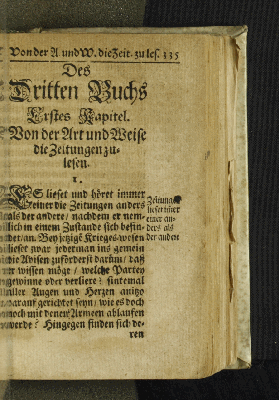 Von der A und W. die Zeit. zu les. 335
Des
Dritten Buchs
Erstes Kapitel.
Von der Art und Weise
die Zeitungen zu-
lesen.
1.
ES lieset und höret immer
einer die Zeitungen anders
als der andere / nachdem er nem-
lich in einem Zustande sich befin-
det / an. Bey jetzige Krieges-wesen
lieset zwar jederman ins gemein
die Avisen zuförderst darüm / daß
er wissen möge / welche Partey
gewinne oder verliere? sintemal
aller Augen und Herzen anitzo
darauf gerichtet seyn / wie es doch
noch mit denen Armeen ablaufen
werde? Hingegen finden sich de-
ren
Zeitungen
lieset immer
einer an-
ders als
der andere